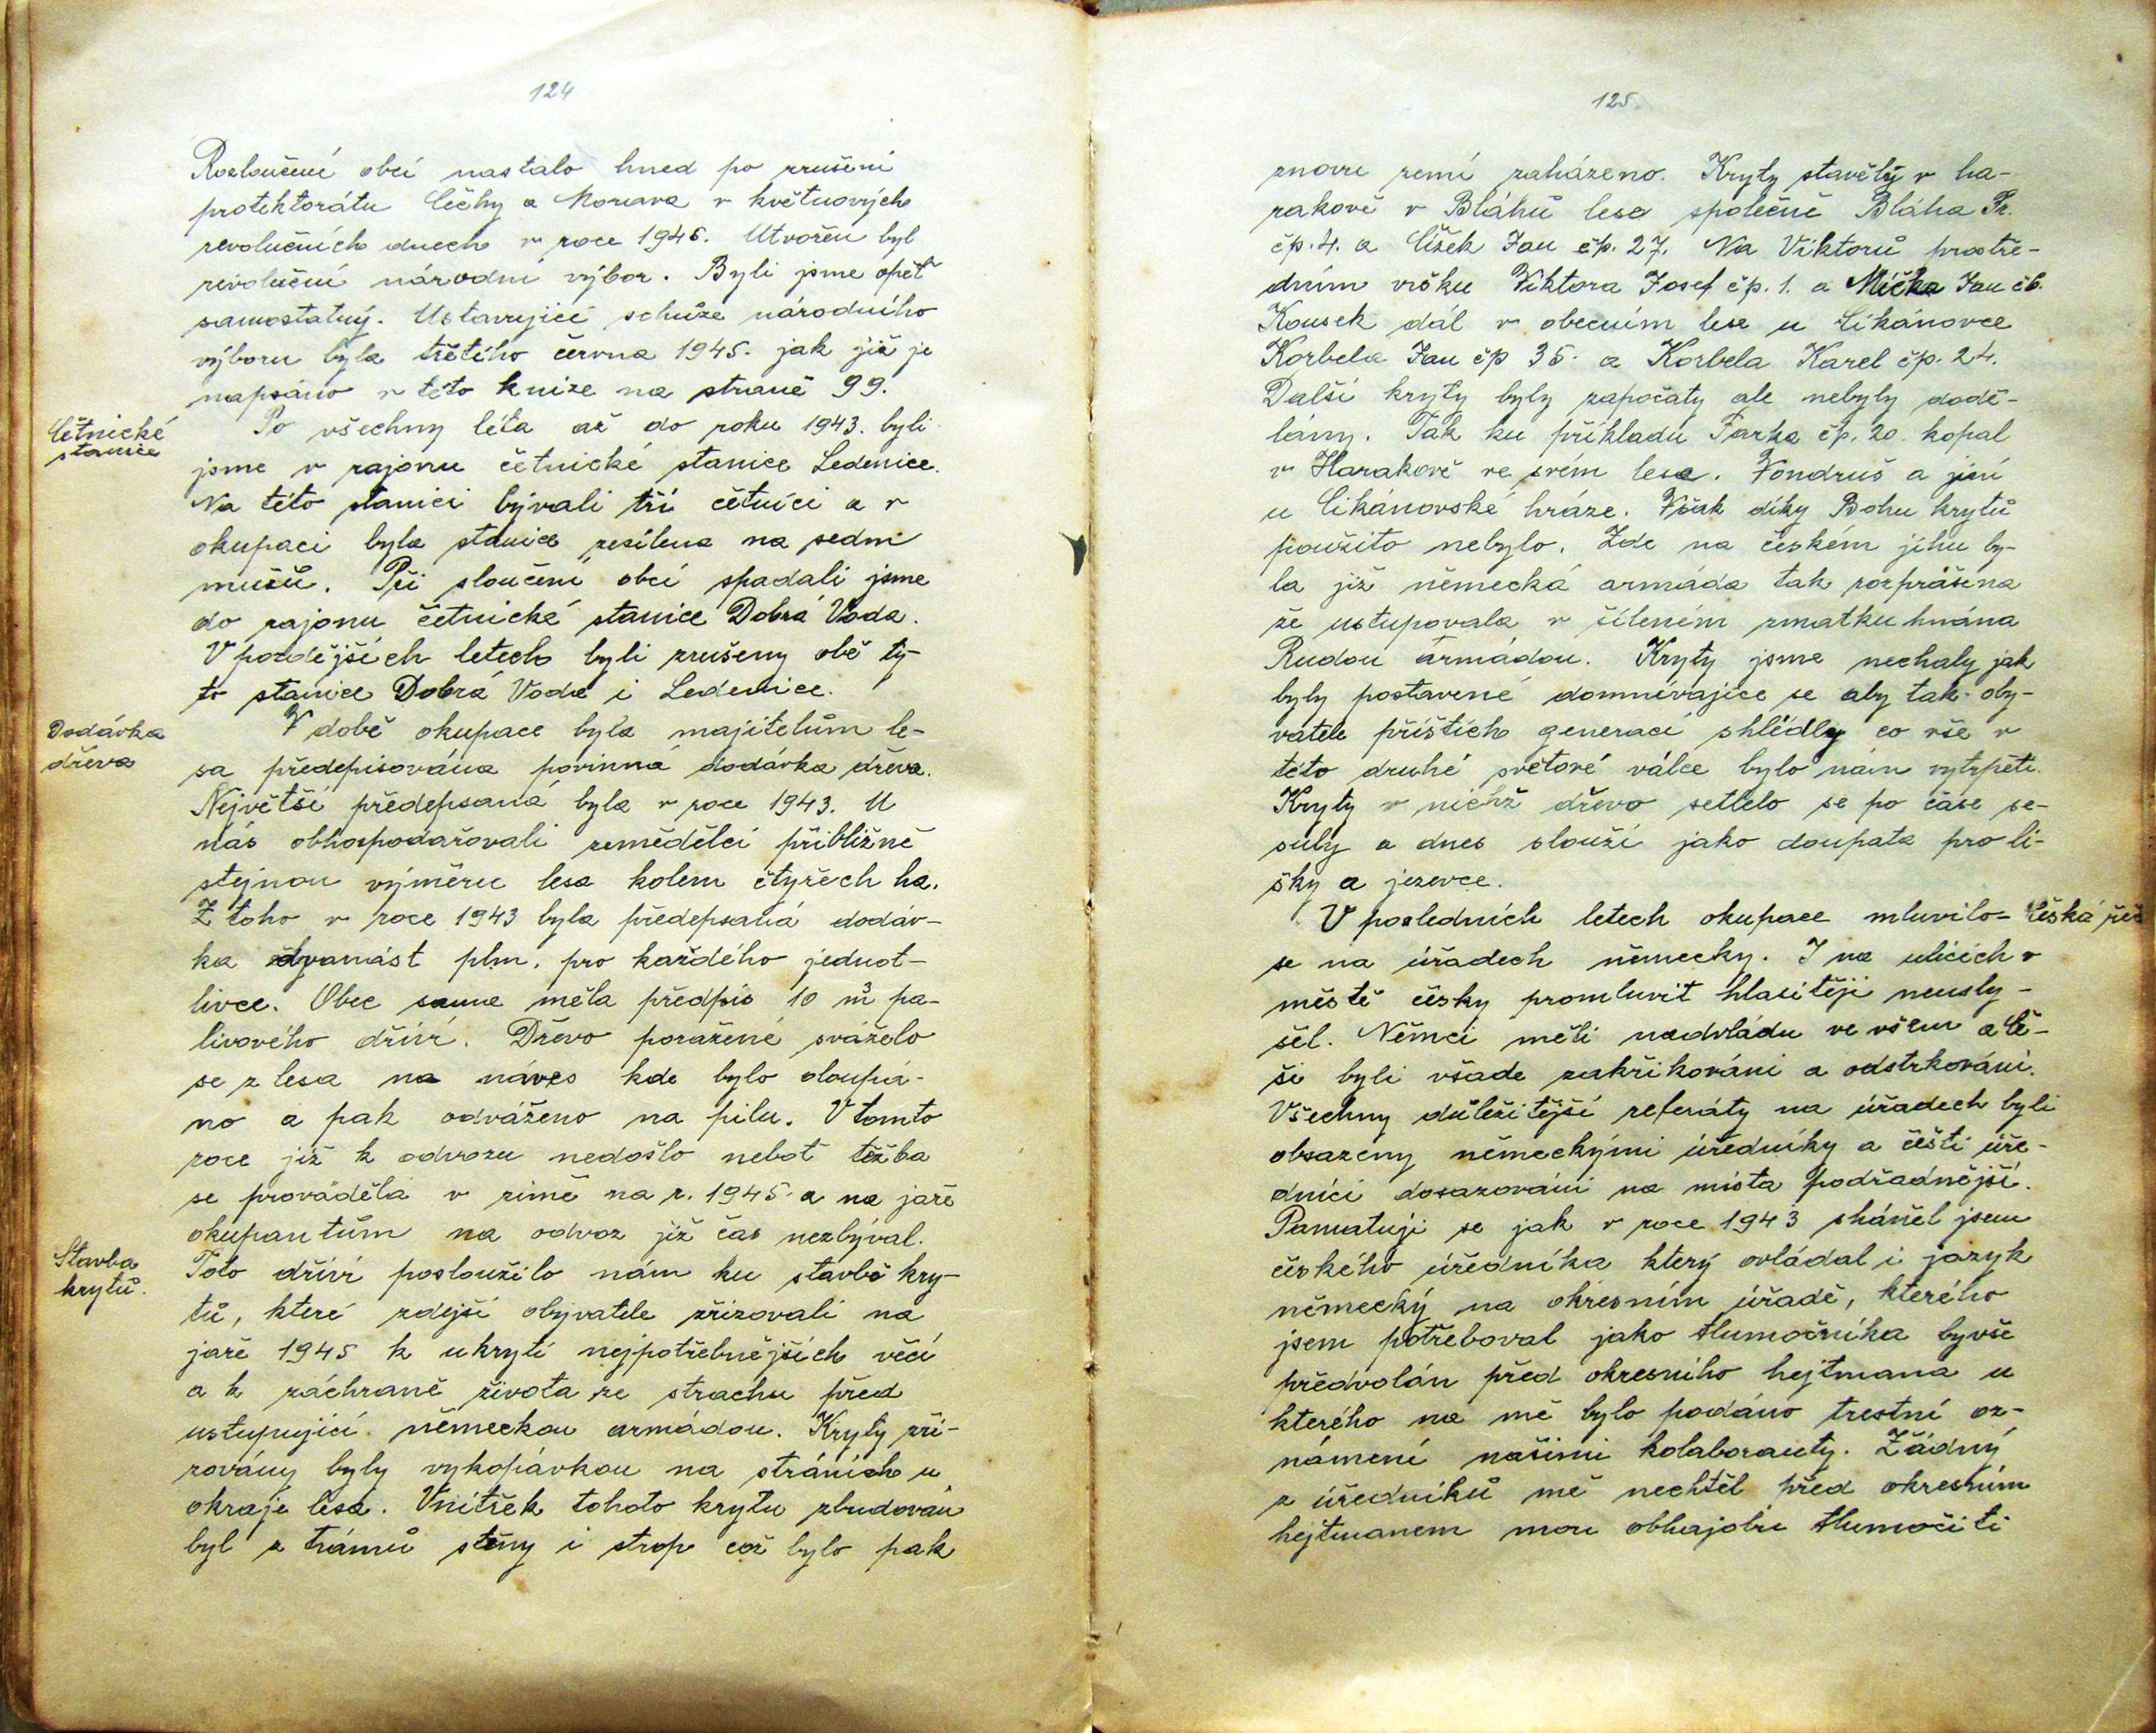 124
Rozloučení obcí nastalo hned po zrušení
protektorátu Čechy a Morava v květnových
revolučních dnech v roce 1945. Utvořen byl
revoluční národní výbor. Byli jsme opět
samostatný. Ustavující schůze národního
výboru byla třetího června 1945. jak již je
napsáno v této knize na straně 99.
Četnické
stanice
Po všechny léta až do roku 1943. byli
jsme v rajonu četnické stanice Ledenice.
Na této stanici bývali tři četníci a v
okupaci byla stanice zesílena na sedm
mužů. Při sloučení obcí spadali jsme
do rajonu četnické stanice Dobrá Voda.
V pozdějších letech byli zrušeny obě ty-
to stanice Dobrá Voda i Ledenice.
Dodávka
dřeva
V době okupace byla majitelům le-
sa předepisována povinná dodávka dřeva.
Největší předepsaná byla v roce 1943. U
nás obhospodařovali zemědělci přibližně
stejnou výměru lesa kolem čtyřech ha.
Z toho v roce 1943 byla předepsaná dodáv-
ka dvanást plm. pro každého jednot-
livce. Obec sama měla předpis 10 m³ pa-
livového dříví. Dřevo poražené sváželo
se z lesa na náves kde bylo oloupá-
no a pak odváženo na pilu. V tomto
roce již k odvozu nedošlo neboť těžba
se prováděla v zimě na r. 1945. a na jaře
okupantům na odvoz již čas nezbýval.
Stavba
krytů.
Toto dříví posloužilo nám ku stavbě kry-
tů, které zdejší obyvatele zřizovali na
jaře 1945 k ukrytí nejpotřebnějších věcí
a k záchraně života ze strachu před
ustupující německou armádou. Kryty zři-
zovány byly vykopávkou na stráních u
okraje lesa. Vnitřek tohoto krytu zbudován
byl z trámů stěny i strop což bylo pak
125.
znovu zemí zaházeno. Kryty stavěly v ha-
rakově v Bláhů lesa společně Bláha Fr.
čp. 4. a Čížek Jan čp. 27. Na Viktorů prostře-
dním vršku Viktora Josef čp. 1. a Mička Jan č6.
Kousek dál v obecním lese u Cikánovce
Korbela Jan čp 35. a Korbela Karel čp. 24.
Další kryty byly započaty ale nebyly dodě-
lány. Tak ku příkladu Farka čp. 20. kopal
v Harakově ve svém lesa. Vondruš a jiní
u Cikánovské hráze. Však díky Bohu krytů
použito nebylo. Zde na českém jihu by-
la již německá armáda tak rozprášena
že ustupovala v šíleném zmatku hnána
Rudou armádou. Kryty jsme nechaly jak
byly postavené domnívajíce se aby tak oby-
vatele příštích generací shlédly co vše v
této druhé světové válce bylo nám vytrpěti.
Kryty v nichž dřevo setlelo se po čase se-
suly a dnes slouží jako doupata pro li-
šky a jezevce.
V posledních letech okupace mluvilo-
Česká řeč
se na úřadech německy. I na ulicích v
městě česky promluvit hlasitěji neusly-
šel. Němci měli nadvládu ve všem a če-
ši byli všade zakřikováni a odstrkováni.
Všechny důležitější referáty na úřadech byli
obsazeny německými úředníky a čeští úře-
dníci dosazováni na místa podřadnější.
Pamatuji se jak v roce 1943 sháněl jsem
českého úředníka který ovládal i jazyk
německý na okresním úřadě, kterého
jsem potřeboval jako tlumočníka byvše
předvolán před okresního hejtmana u
kterého na mě bylo podáno trestní oz-
námení našimi kolaboranty. Žádný
z úředníků mě nechtěl před okresním
hejtmanem mou obhajobu tlumočiti